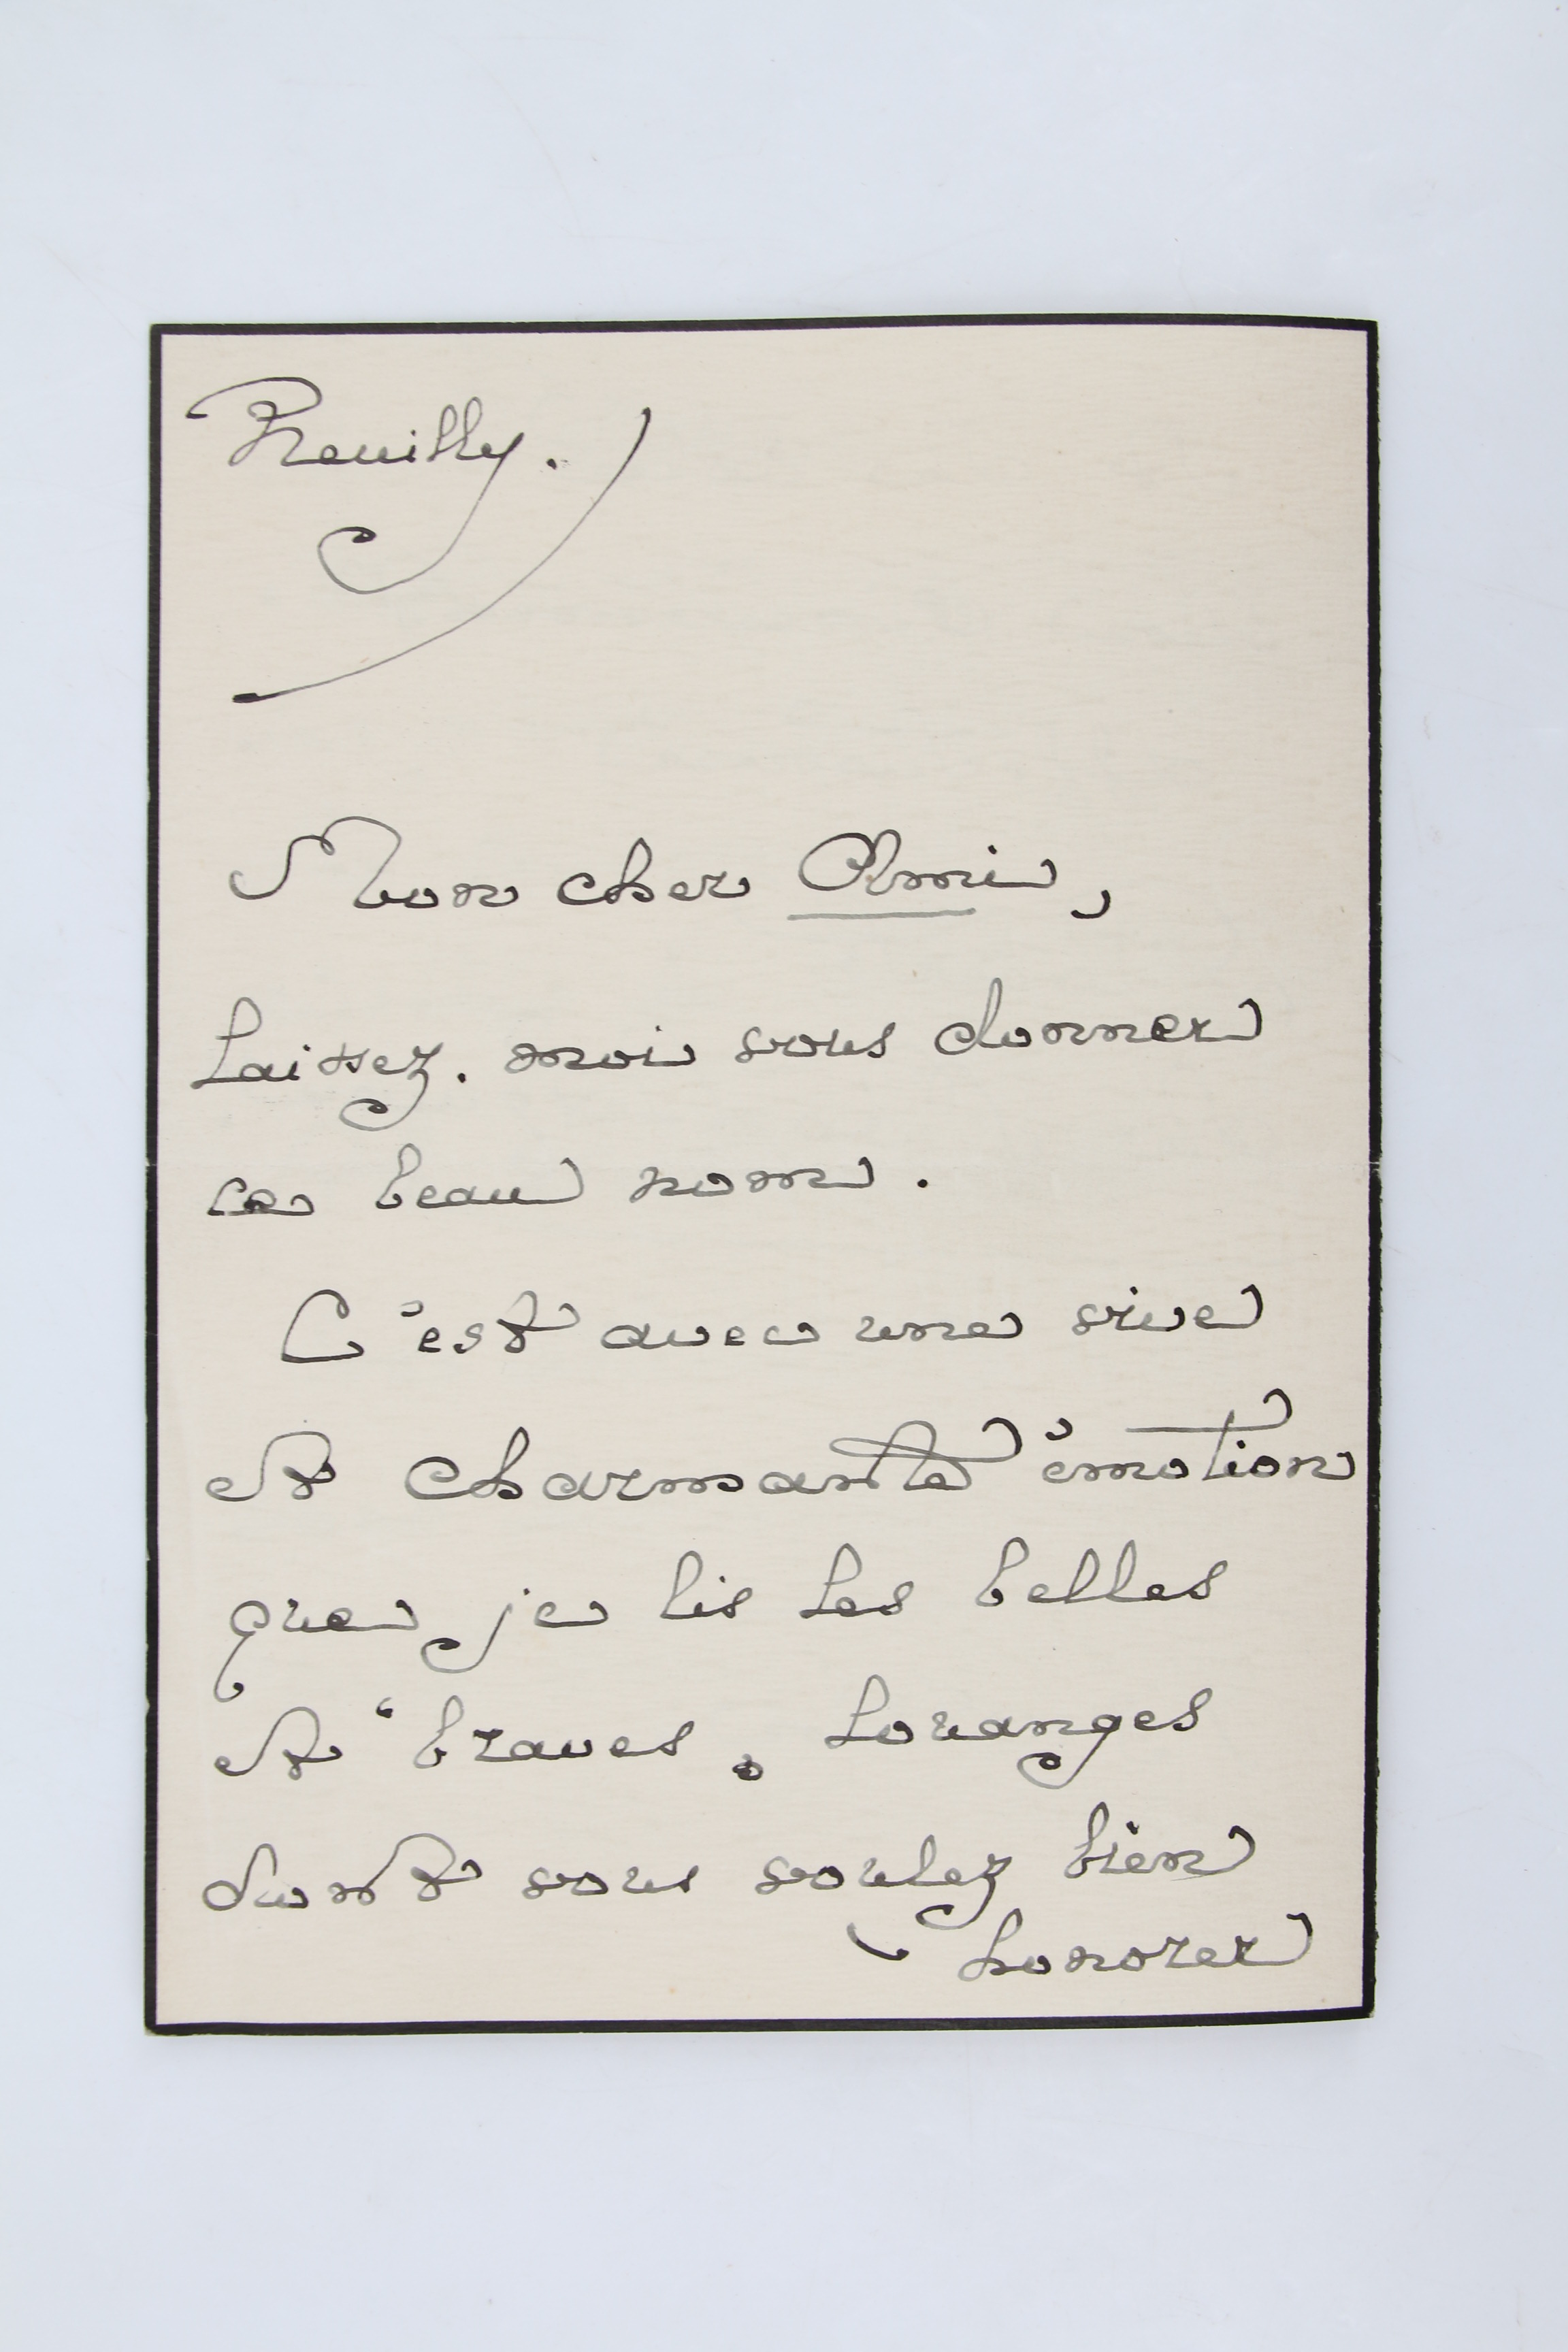 Neuilly.
Mon cher Ami,
Laissez. moi vous donner
ce beau nom.
C'est avec une vive
et charmante émotion
que je lis les belles
et "braves" louanges
dont vous voulez bien
honorer